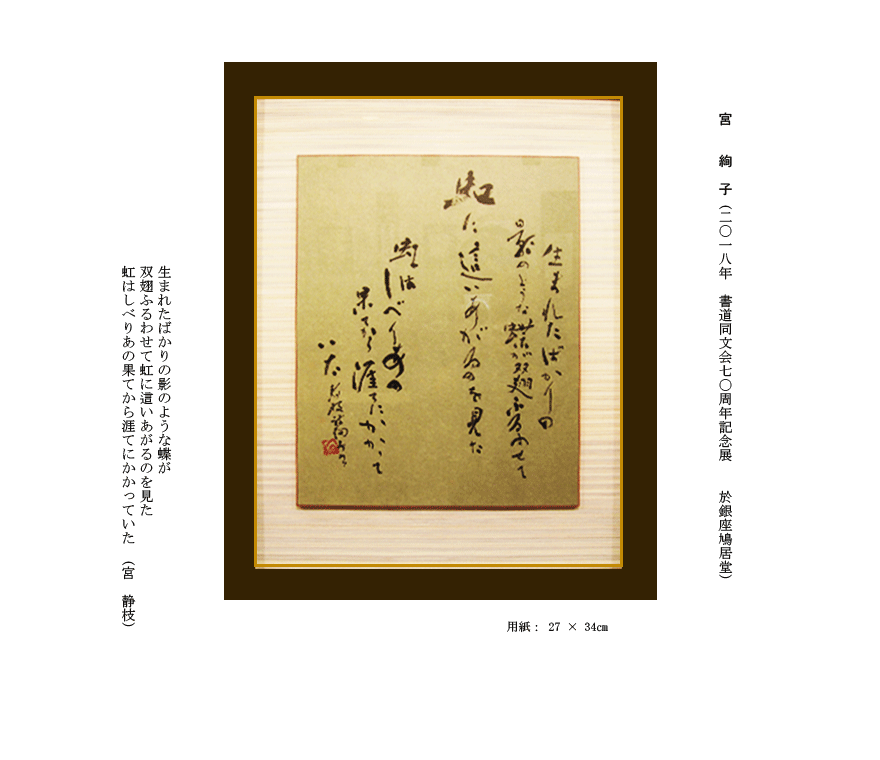 宮 絢子(二〇一八年 書道同文会七〇周年記念展 於銀座鳩居堂)
生まれたばかりの
影のような蝶が双翅ふるわせて
虹に這いあがるのを見た
虹はしべりあの
果てから涯てにかかって
いた
生まれたばかりの影のような蝶が
双翅ふるわせて虹に這いあがるのを見た
虹はしべりあの果てから涯てにかかっていた (宮 静枝)
用紙: 27 × 34cm